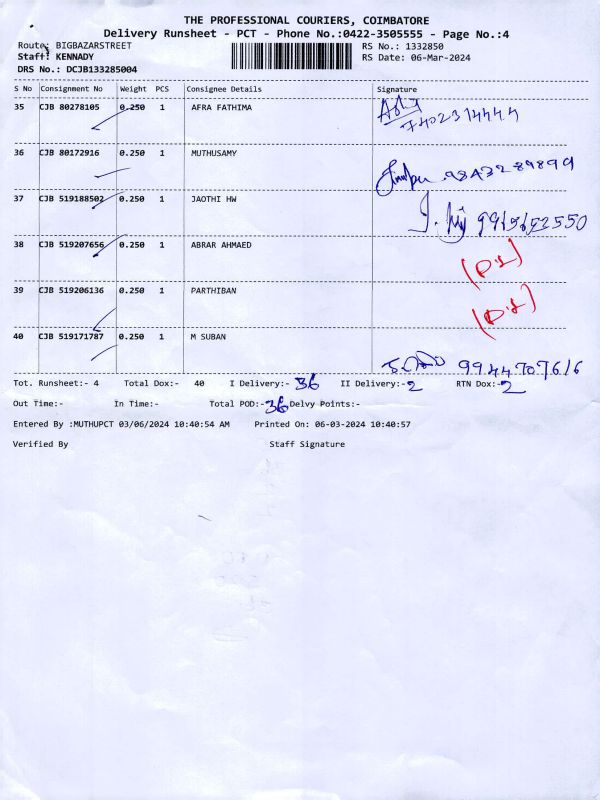 THE PROFESSIONAL COURIERS, COIMBATORE
Delivery Runsheet - PCT - Phone No.:0422-3505555 - Page No.:4
Route: BIGBAZARSTREET RS No.: 1332850
Staff: KENNADY RS Date: 06-Mar-2024
DRS No.: DCJB133285004
S No Consignment No Weight PCS Consignee Details Signature
35 CJB 80278105 0.250 1 AFRA FATHIMA
7402314444
36 CJB 80172916 0.250 1 MUTHUSAMY
9843289899
37 CJB 519188502 0.250 1 JAOTHI HW
38 CJB 519207656 0.250 1 ABRAR AHMAED
39 CJB 519206136 0.250 1 PARTHIBAN
40 CJB 519171787 0.250 1 M SUBAN
9944707616
Tot. Runsheet:- 4 Total Dox:- 40 I Delivery:- 36 II Delivery:- 2 RTN Dox:- 2
Out Time:- In Time:- Total POD:- 36 Delvy Points:-
Entered By :MUTHUPCT 03/06/2024 10:40:54 AM Printed On: 06-03-2024 10:40:57
Verified By Staff Signature